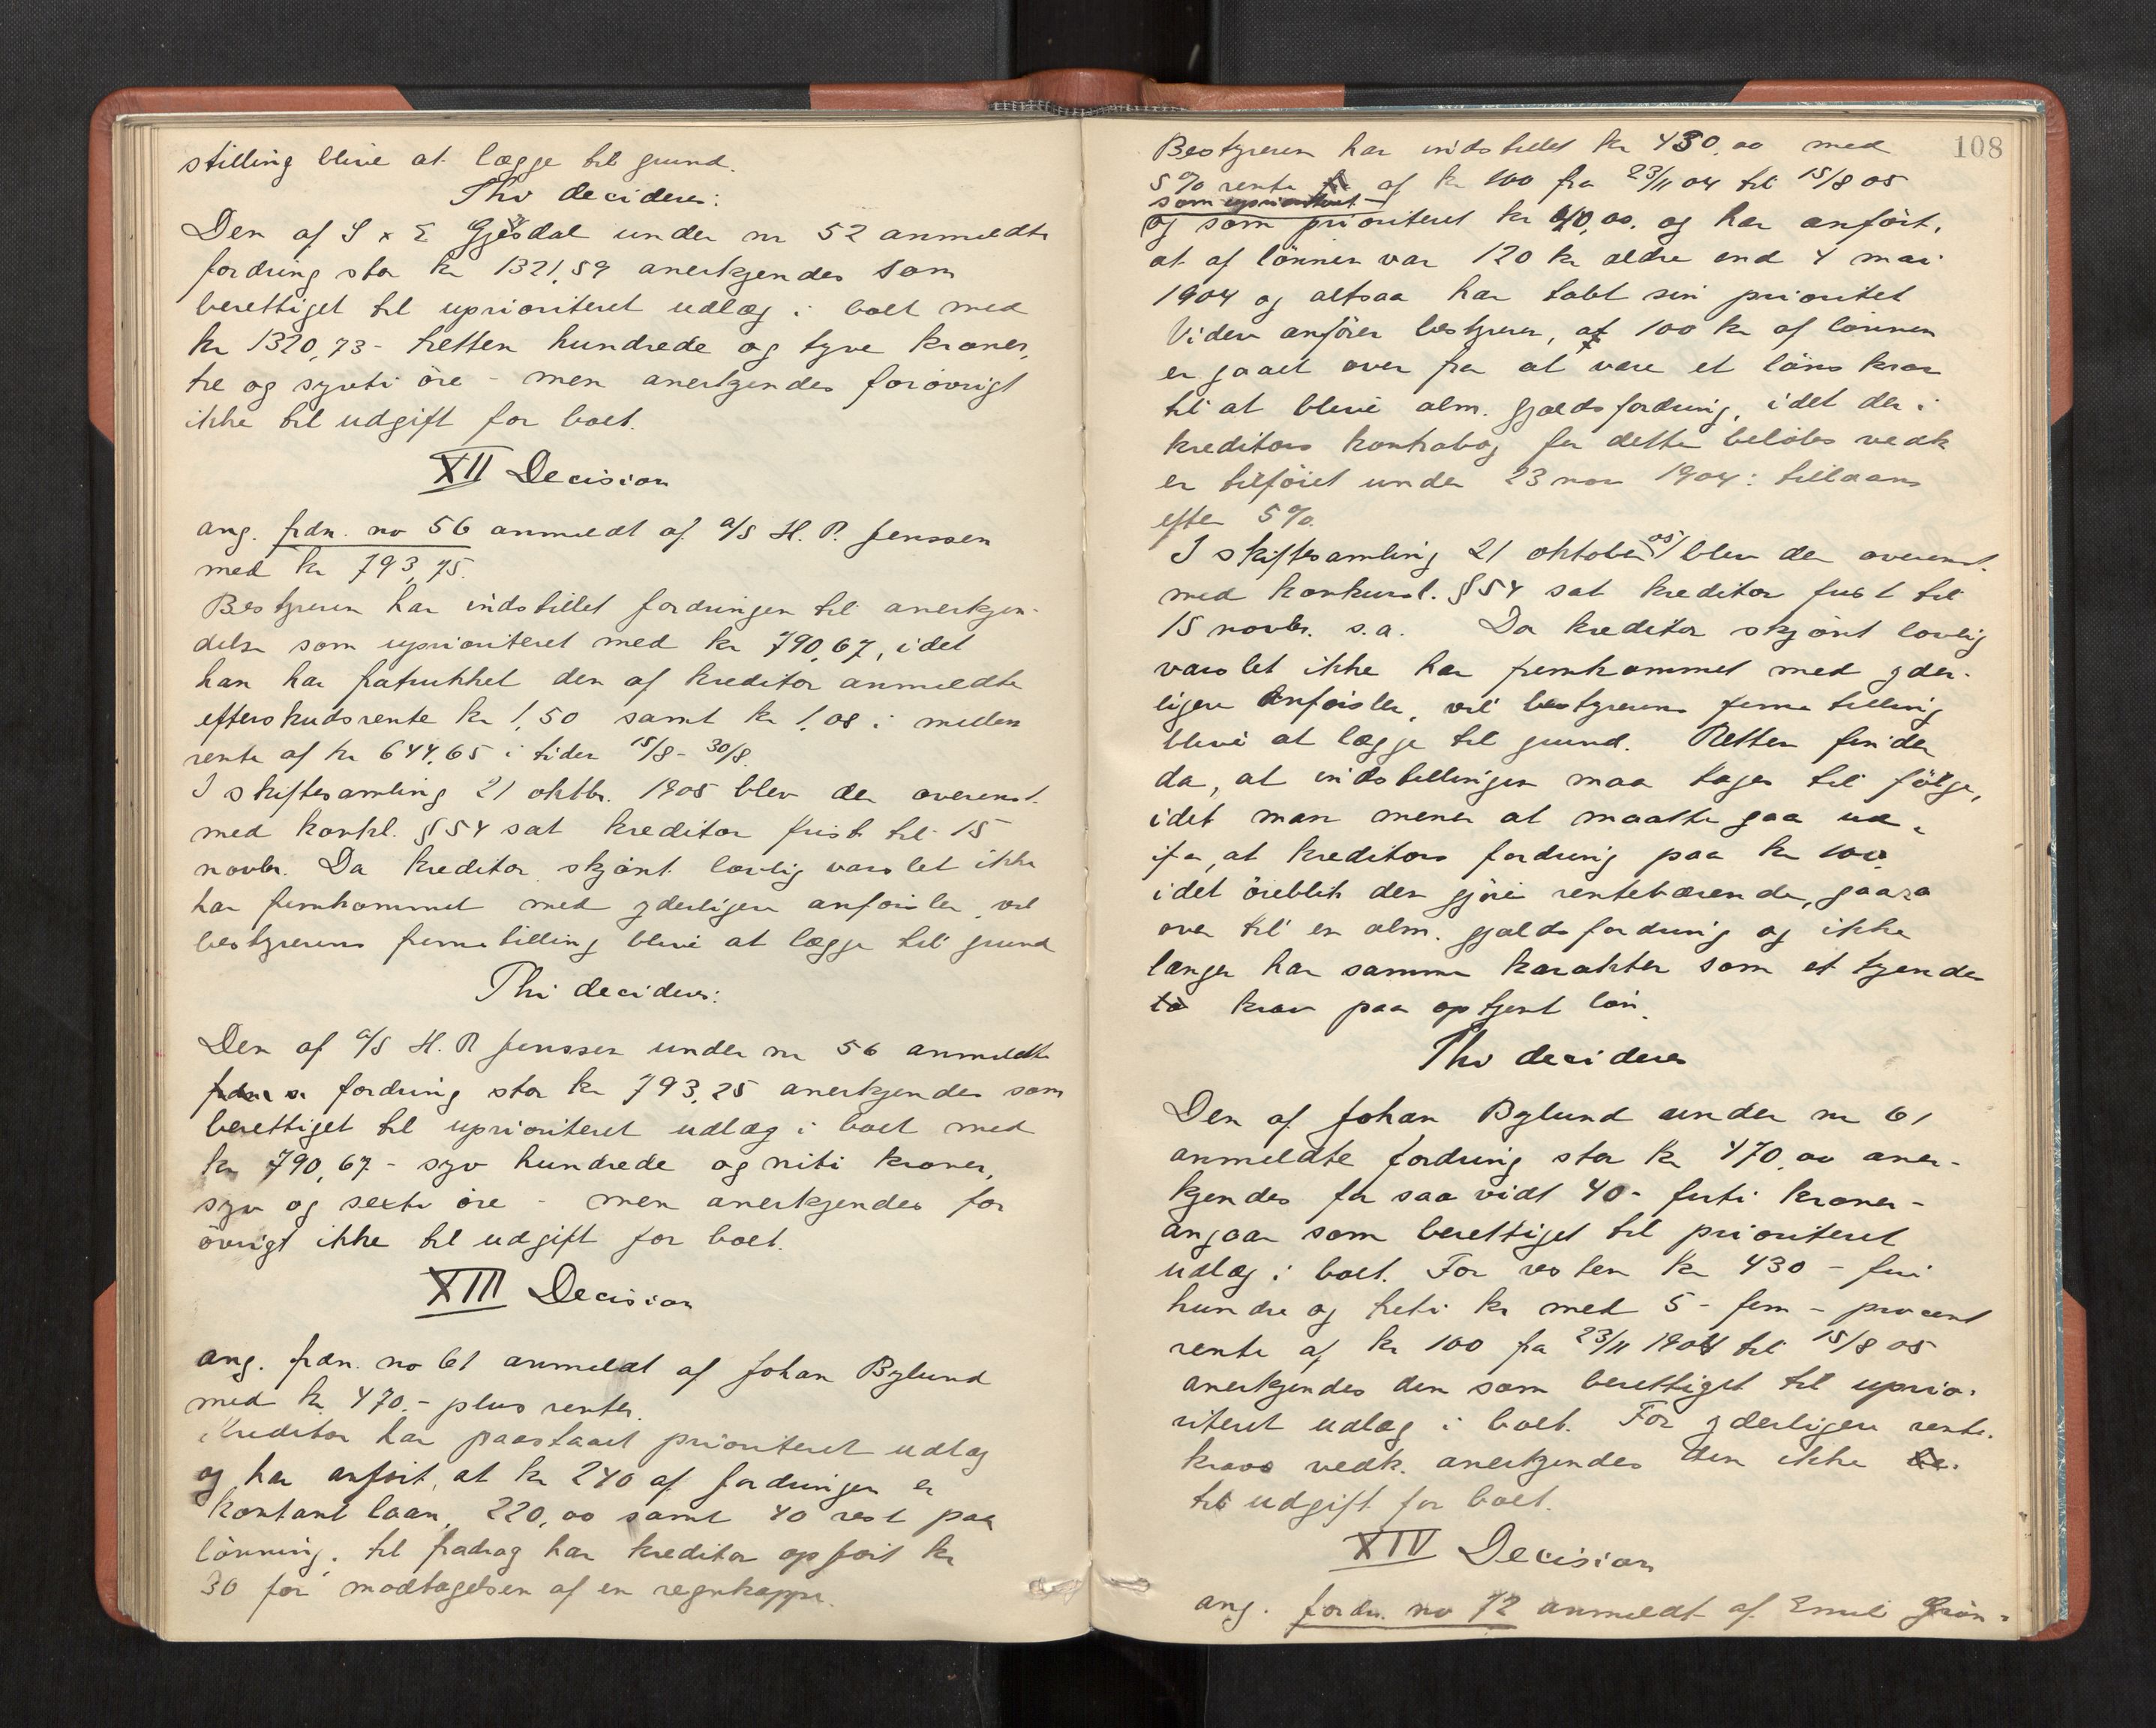 stilling blive at lægge til grund.
Thi decideres:
Den af S & E Gjesdal under nr 52 anmeldte
fordring stor kr 1321,59 anerkjendes som
berettiget til uprioriteret udlæg i boet med
kr 1320,73 - tretten hundrede og tyve kroner,
tre og sytti öre - men anerkjendes forövrigt
ikke til udgift for boet.
XII Decision
ang. frdn. no 56 anmeldt af a/S H. P. Jenssen
med kr 793,75.
Bestyreren har indstillet fordringen til anerkjen-
delse som uprioriteret med kr 790,67, idet
han har fratrukket den af kreditor anmeldte
efterskudsrente kr 1,50 samt kr 1,08 i mellem
rente af kr 644,65 i tiden 15/8 - 30/8.
I skiftesamling 21 oktbr. 1905 blev der overenst.
med konkl. § 54 sat kreditor frist til 15
novbr. Da kreditor skjönt lovlig varslet ikke
har fremkommet med yderligere anförsler, vil
bestyrerens fremstilling blive at lægge til grund
Thi decideres:
Den af a/S H. P. Jenssen under nr 56 anmeldte
fordring stor kr 793,25 anerkjendes som
berettiget til uprioriteret udlæg i boet med
kr 790,67 - syv hundrede og nitti kroner,
syv og sexti öre - men anerkjendes for
övrigt ikke til udgift for boet.
XIII Decision
ang. frdn. no 61 anmeldt af Johan Bylund
med kr 470.- plus renter.
Kreditor har paastaaet prioriteret udlæg
og har anfört, at kr 240 af fordringen er
kontant laan, 220,00 samt 40 rest paa
lönning. til fradrag har kreditor opfört kr
30 for modtagelsen af en regnkappe.
108
Bestyreren har indstillet kr 430,00 med
5 % rente af kr 100 fra 23/11 04 til 15/8 05
som uprioriteret
og som prioriteret kr 40,00. og har anfört,
at af lönnen var 120 kr ældre end 4 mai
1904 og altsaa har tabt sin prioritet
Videre anförer bestyreren, at 100 kr af lönnen
er gaaet over fra at være et löns krav
til at blive alm. gjældsfordring, idet der i
kreditors kontrabog for dette belöbs vedk
er tilföiet under 23 nov 1904: tillaans
efter 5 %.
I skiftesamling 21 oktober 05 blev der overenst.
med konkursl. § 54 sat kreditor frist til
15 novbr. s.a. Da kreditor skjönt lovlig
varslet ikke har fremkommet med yder-
ligere anförsler, vil bestyrerens fremstilling
blive at lægge til grund. Retten finder
da, at indstillingen maa tages til fölge,
idet man mener at maatte gaa ud
ifra, at kreditors fordring paa kr 100
idet öieblik den gjöres rentebærende, gaar
over til en alm. gjældsfordring og ikke
længer har samme karakter som et tyendes
krav paa optjent lön.
Thi decideres
Den af Johan Bylund under nr 61
anmeldte fordring stor kr 470,00 aner-
kjendes for saa vidt 40 - firti kroner -
angaar som berettiget til prioriteret
udlæg i boet. For resten kr 430 - fire
hundre og treti kr med 5 - fem - procent
rente af kr 100 fra 23/11 1904 til 15/8 05
anerkjendes den som berettiget til uprio-
riteret udlæg i boet. For yderligere rente-
kravs vedk. anerkjendes den ikke
til udgift for boet.
XIV Decision
ang. fordr. no 72 anmeldt af Emil Grön-